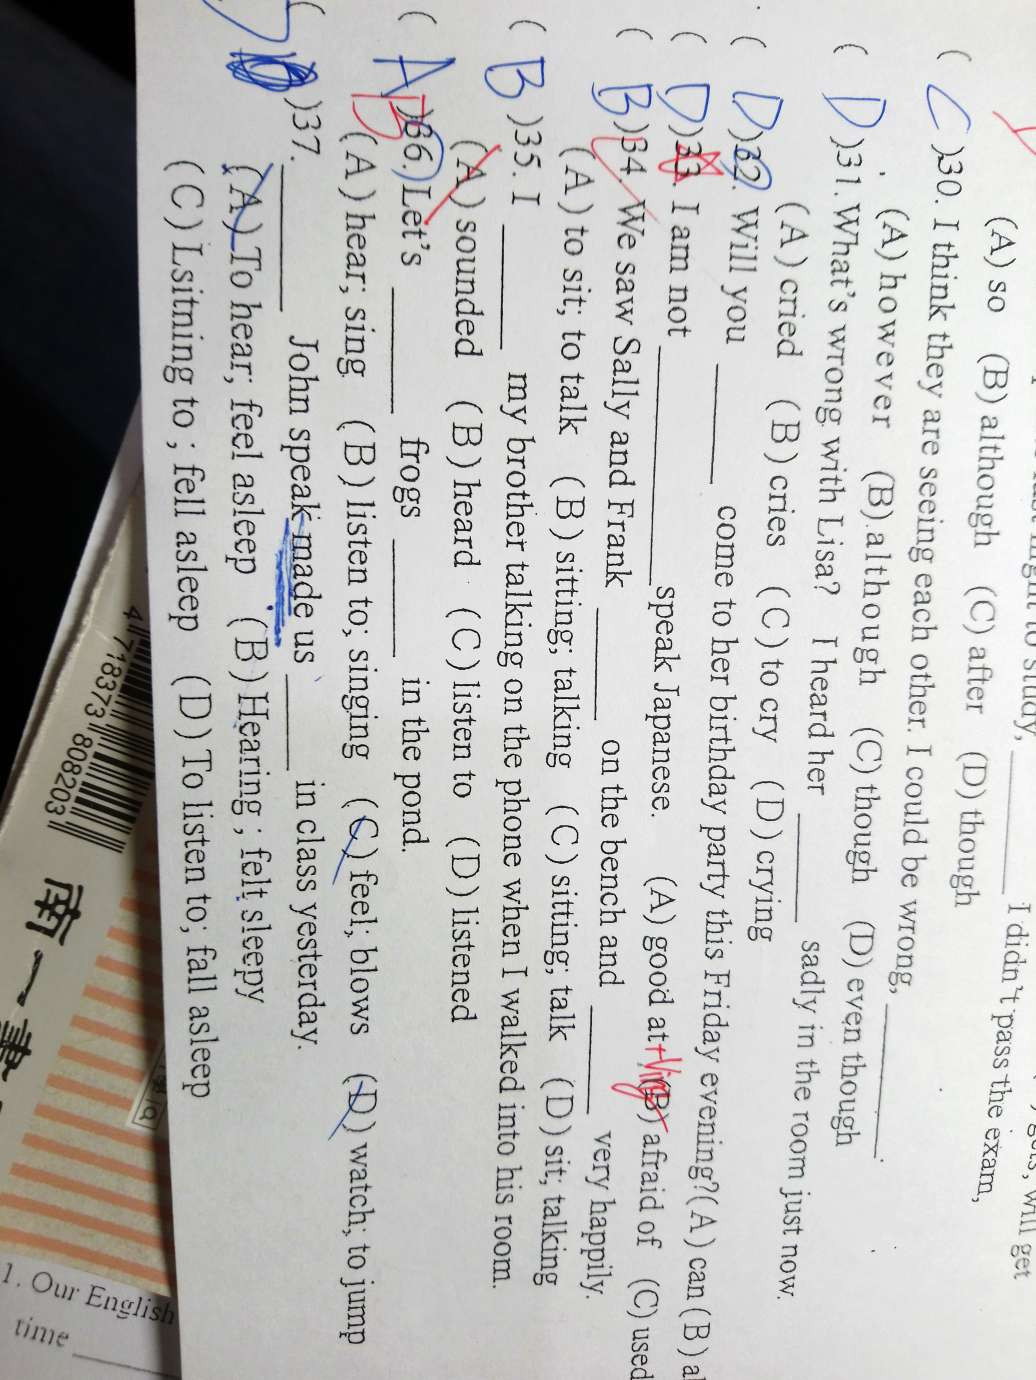 I didn't pass the exam,
(A) so (B) although (C) after (D) though
( C )30. I think they are seeing each other. I could be wrong, ________.
(A) however (B) although (C) though (D) even though
( D )31. What's wrong with Lisa? I heard her ________ sadly in the room just now.
(A) cried (B) cries (C) to cry (D) crying
( D )32. Will you ________ come to her birthday party this Friday evening?(A) can (B)
( D )33. I am not ________ speak Japanese. (A) good at +Ving (B) afraid of (C) used
( B )34. We saw Sally and Frank ________ on the bench and ________ very happily.
(A) to sit; to talk (B) sitting; talking (C) sitting; talk (D) sit; talking
( B )35. I ________ my brother talking on the phone when I walked into his room.
(A) sounded (B) heard (C) listen to (D) listened
( A B )36. Let's ________ frogs ________ in the pond.
(A) hear; sing (B) listen to; singing (C) feel; blows (D) watch; to jump
( )37. ________ John speak made us ________ in class yesterday.
(A) To hear; feel asleep (B) Hearing ; felt sleepy
(C) Lsitning to ; fell asleep (D) To listen to; fall asleep
4 718373 808203
南一書
1. Our English
time